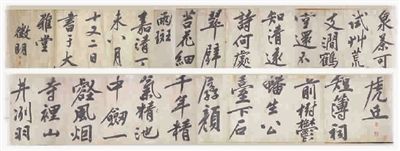 虎丘
短簿祠
前樹鬱
蟠生公
臺下石
孱顏
千年精
氣精池
中劍一
壑風烟
寺裡山
井洌羽
泉茶可
試艸荒
支澗鶴
空還不
知清遠
詩何處
翠壁
苔花細
雨斑
嘉靖丁
未八月
十又二日
書于大
雅堂
徵明